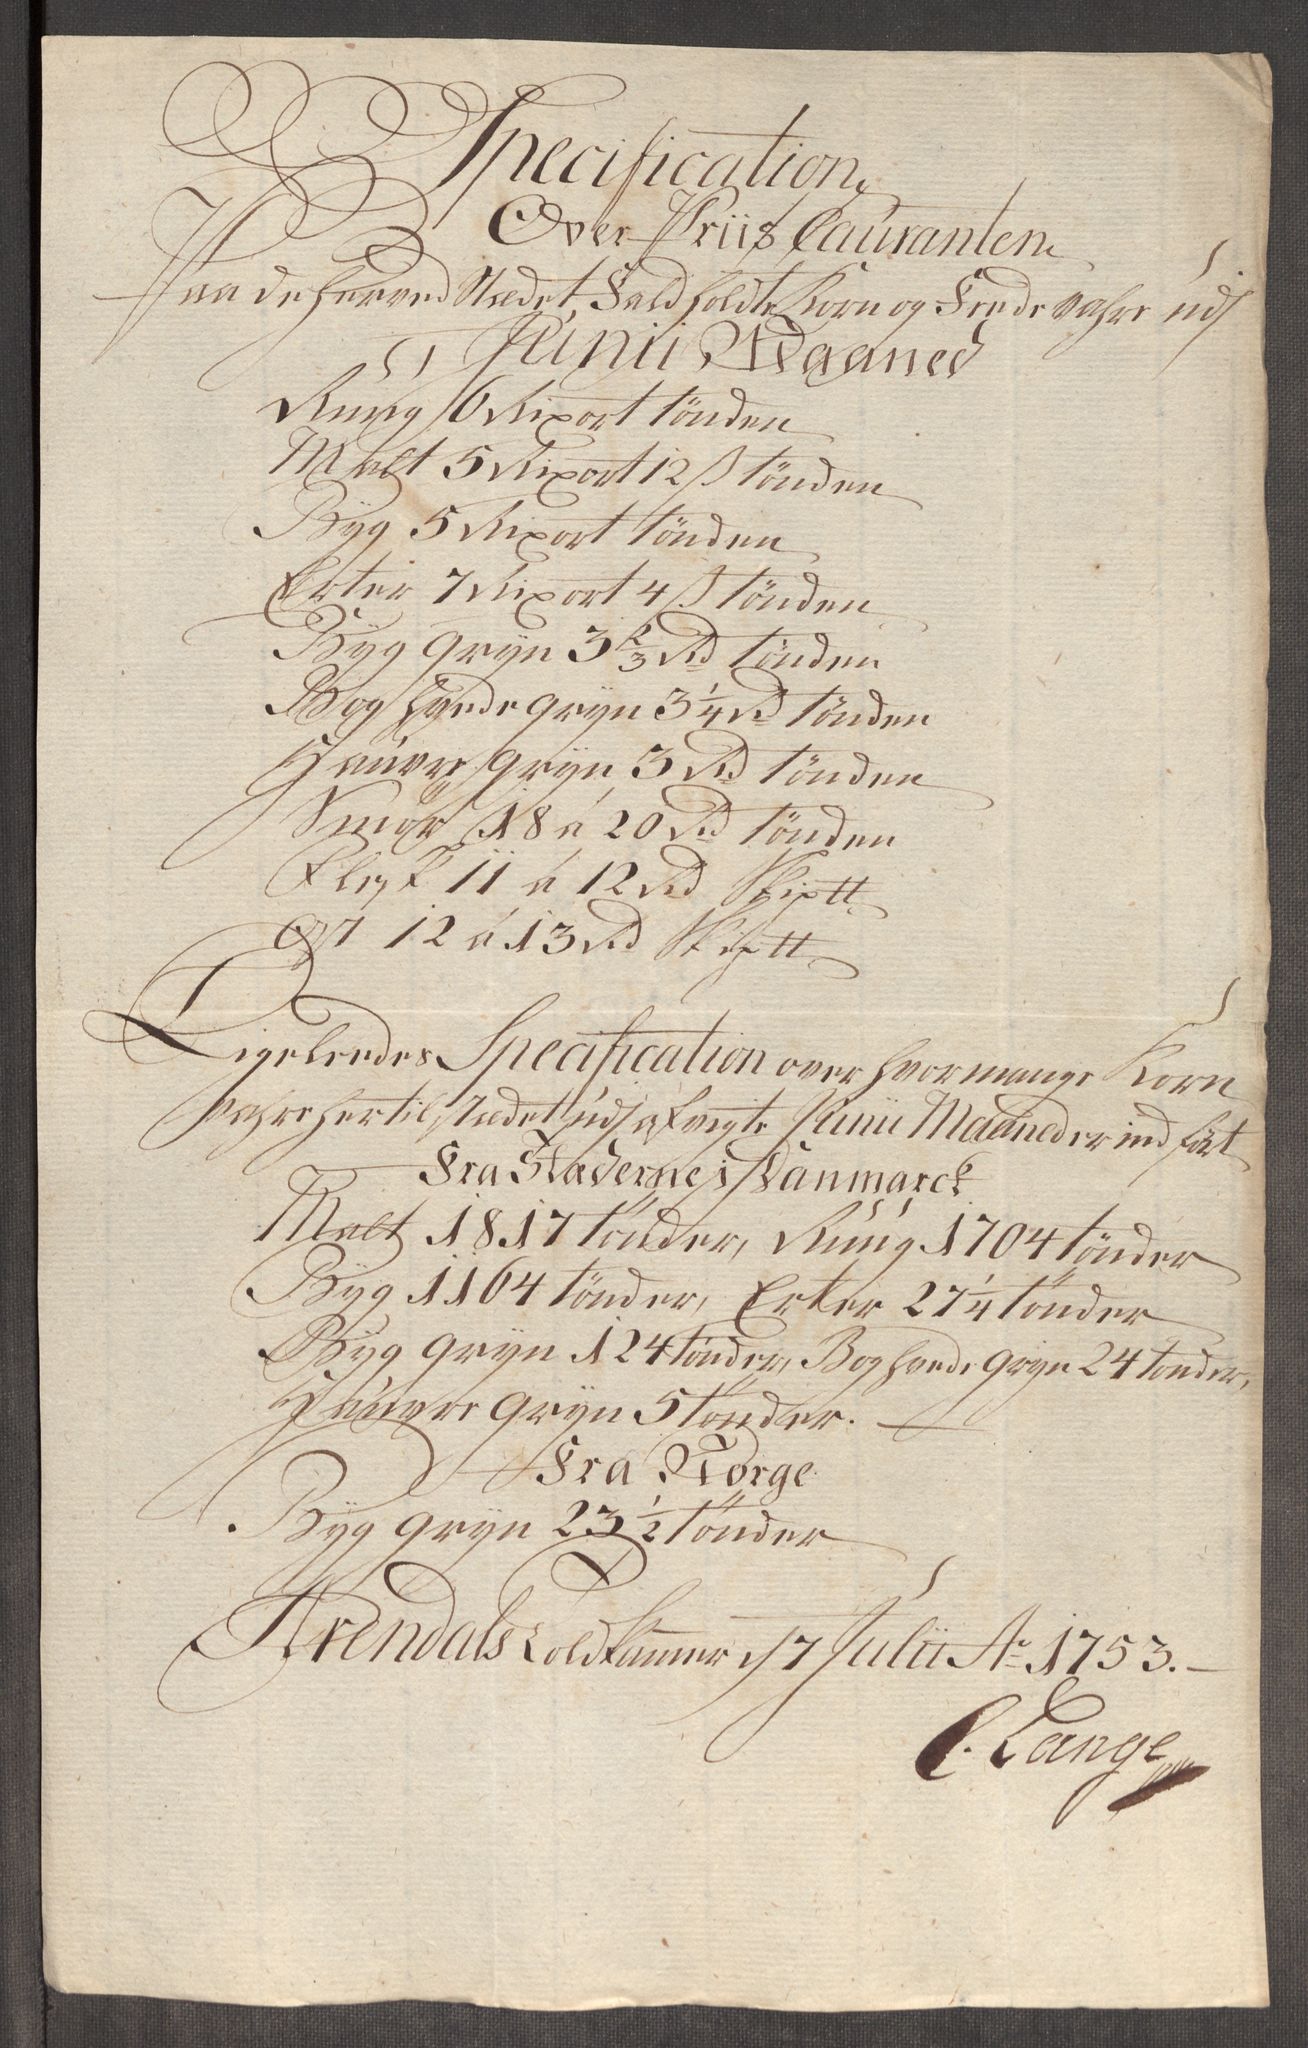 Specification
Over Priis Couranten
Paa de herved Stædet Fald holdte Korn og Feede vahre udj
Junii Maaned
Rúúg 6 Rixort tönden
Malt 5 Rixort 12 ß tönden
Byg 5 Rixort tönden
Erter 7 Rixort 4 ß tönden
Byg gryn 3 2/3 Rd tönden
Boghvede gryn 3 1/4 Rd tönden
Haúvre gryn 3 Rd tönden
Smör 18 á 20 Rd tönden
Flesk 11 á 12 Rd Skip tt
Ost 12 á 13 Rd Skip tt
Ligeleedes Specification over hvor mange Korn
vahre hertil stædet udj afvigte Junii Maaned er ind fört
Fra Stæderne j Danmarck
Malt 1817 tönder, Rúúg 1704 tönder
Byg 1164 tönder, Erter 27 1/4 tönder
Byg gryn 124 tönder, Boghvede gryn 24 tönder,
Haúvre gryn 5 tönder.
Fra Norge
Byg gryn 23 1/2 tönder
Arendals Toldkammer d 7 Julii Ao 1753.
C. Lange